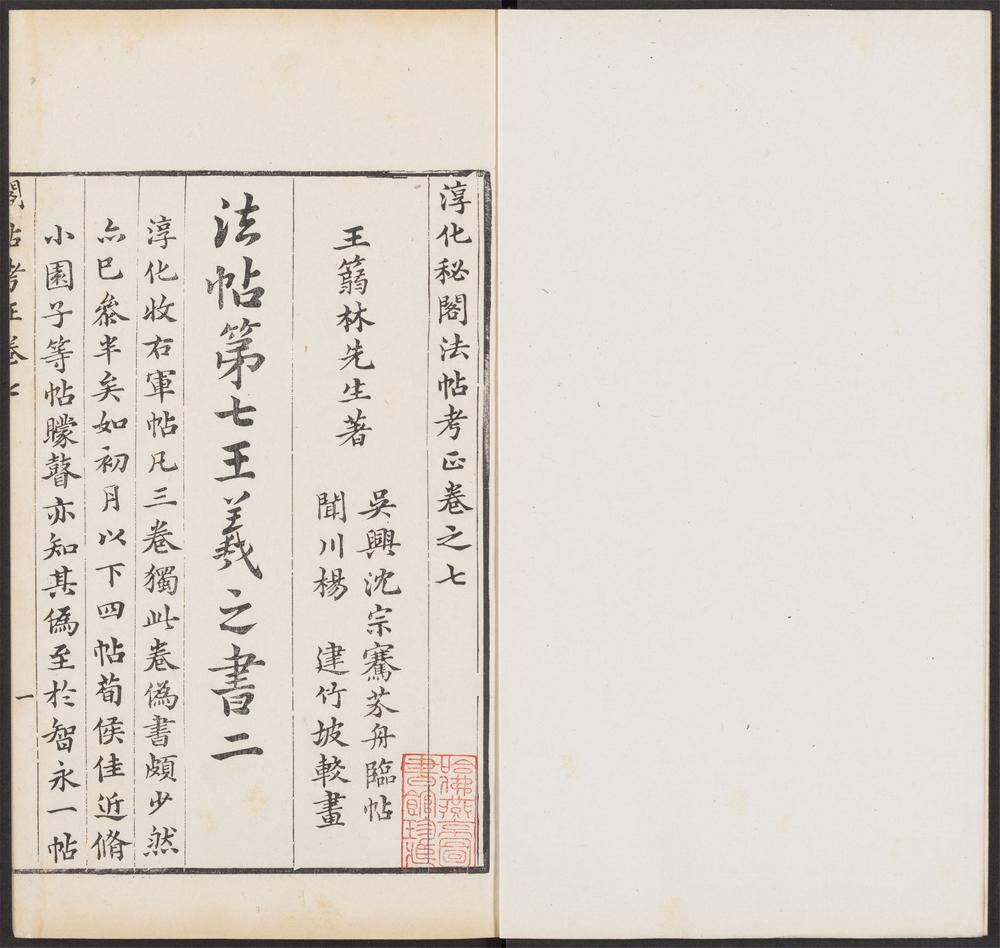 淳化秘閣法帖考正卷之七
王篛林先生著
吳興沈宗騫芥舟臨帖
聞川楊　建竹坡較畫
法帖第七王羲之書二
淳化收右軍帖凡三卷獨此卷偽書頗少然
亦已叅半矣如初月以下四帖荀侯佳近脩
小園子等帖矇瞽亦知其僞至於智永一帖
閣帖考正卷七
一
哈佛燕京圖書館珍藏